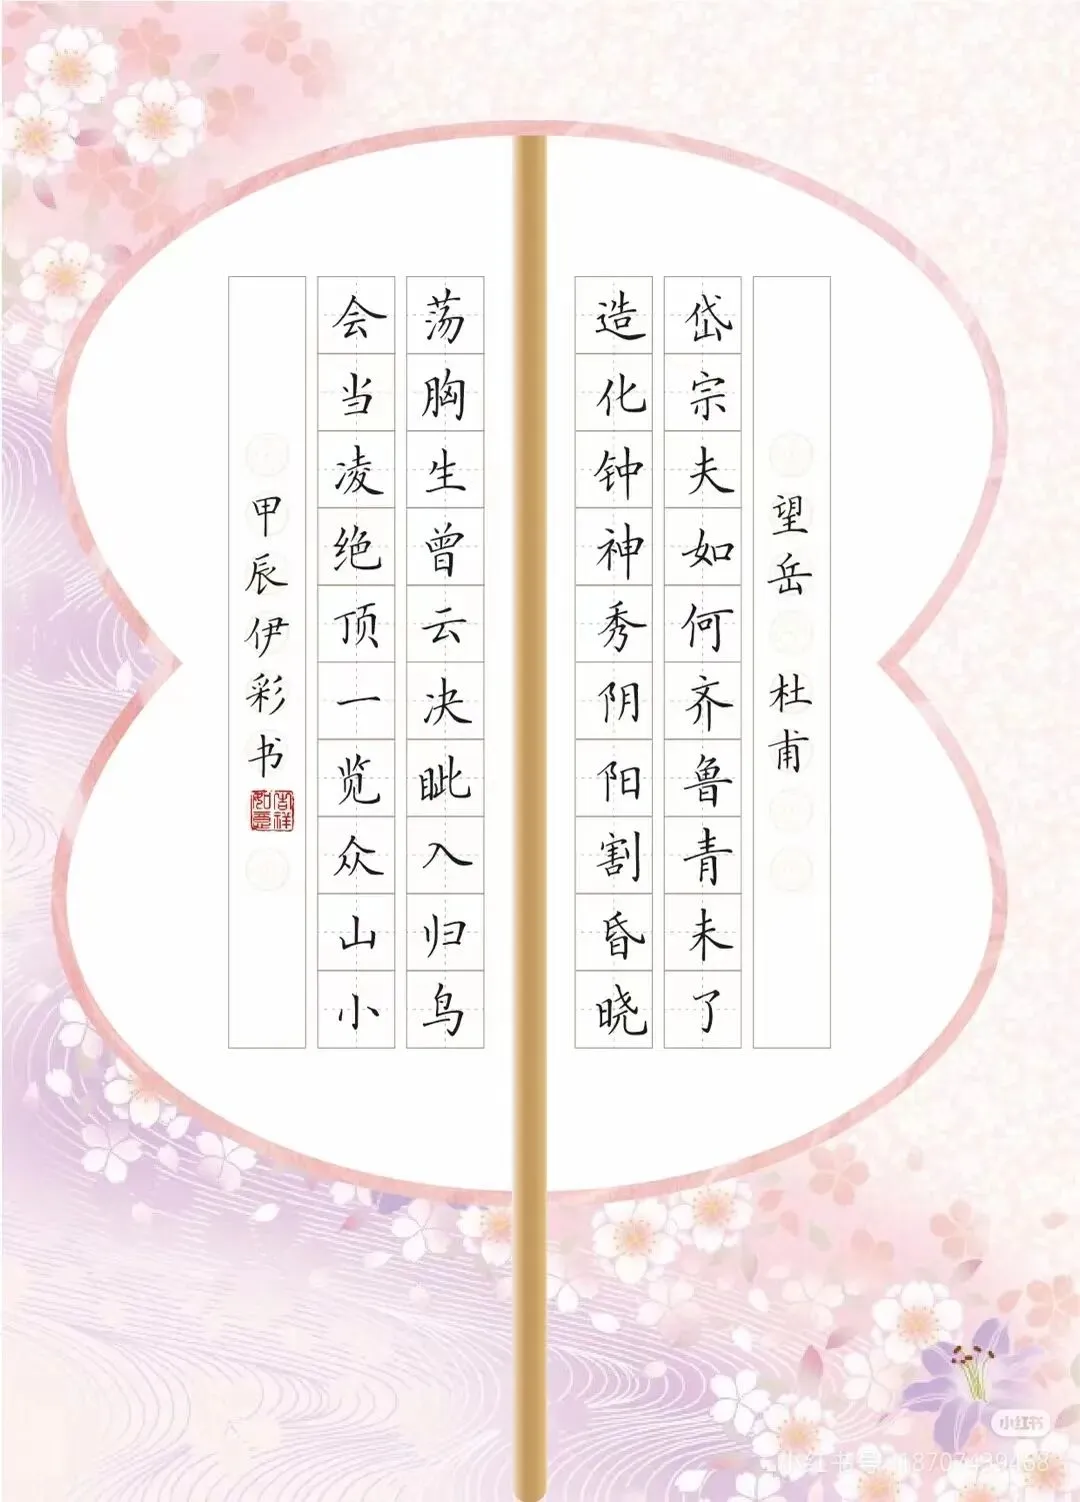 望岳 杜甫
岱宗夫如何齐鲁青未了
造化钟神秀阴阳割昏晓
荡胸生曾云决眦入归鸟
会当凌绝顶一览众山小
甲辰伊彩书
吉祥如意
小红书